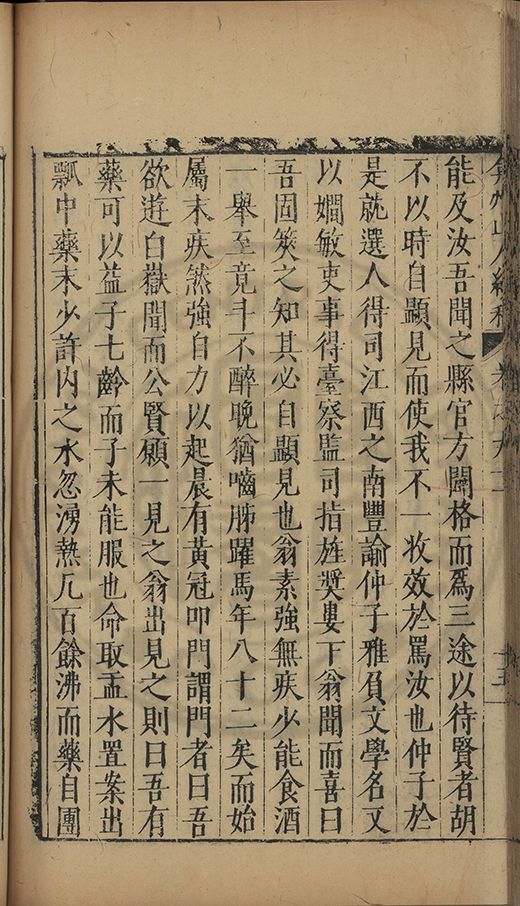 弇州山人續稿 卷之九十二 十五
能及汝吾聞之縣官方闢格而爲三途以待賢者胡
不以時自顯見而使我不一收效於罵汝也仲子於
是就選人得司江西之南豐諭仲子雅負文學名又
以嫺敏吏事得臺察監司指旌奬婁下翁聞而喜曰
吾固筴之知其必自顯見也翁素強無疾少能食酒
一舉至竟斗不醉晚猶嚙胏躍馬年八十二矣而始
屬末疾煞強自力以起晨有黃冠叩門謂門者曰吾
欲遊白嶽聞而公賢願一見之翁出見之則曰吾有
藥可以益子七齡而子未能服也命取盂水置案出
瓢中藥末少許内之水忽湧熱凢百餘沸而藥自團